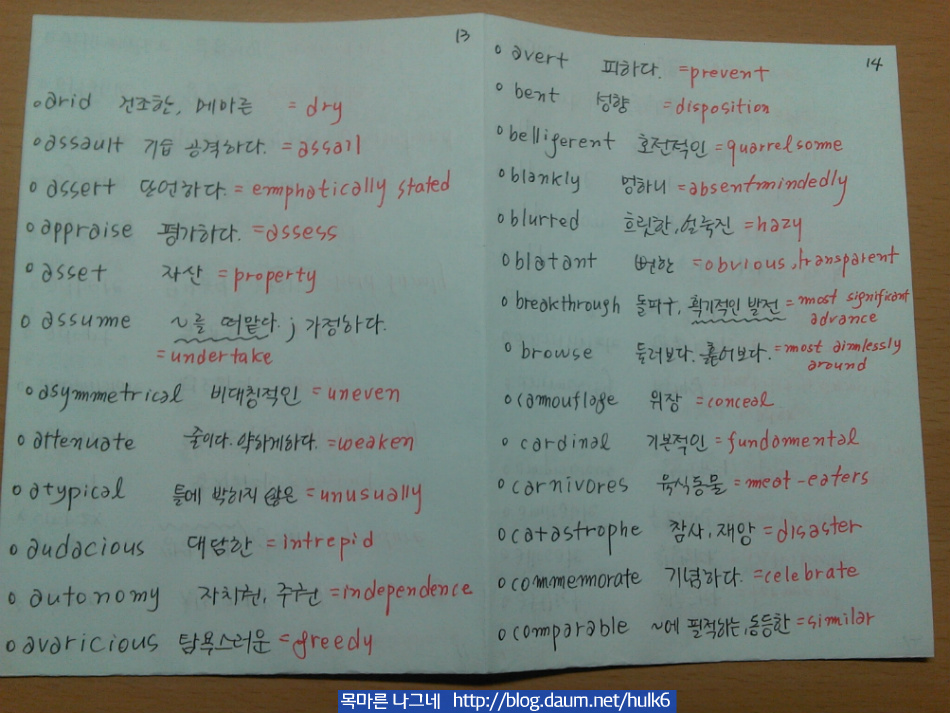 13
arid 건조한, 메마른 = dry
assault 기습 공격하다. = assail
assert 단언하다. = emphatically stated
appraise 평가하다. = assess
asset 자산 = property
assume ~를 떠맡다. ; 가정하다.
= undertake
asymmetrical 비대칭적인 = uneven
attenuate 줄이다. 약하게하다. = weaken
atypical 틀에 박히지 않은 = unusually
audacious 대담한 = intrepid
autonomy 자치권, 주권 = independence
avaricious 탐욕스러운 = greedy
14
avert 피하다. = prevent
bent 성향 = disposition
belligerent 호전적인 = quarrelsome
blankly 멍하니 = absentmindedly
blurred 흐릿한, 얼룩진 = hazy
blatant 뻔한 = obvious, transparent
breakthrough 돌파구, 획기적인 발전 = most significant
advance
browse 둘러보다. 훑어보다. = most aimlessly
around
camouflage 위장 = conceal
cardinal 기본적인 = fundamental
carnivores 육식동물 = meat-eaters
catastrophe 참사, 재앙 = disaster
commemorate 기념하다. = celebrate
comparable ~에 필적하는, 동등한 = similar
목마른 나그네 http://blog.daum.net/hulk6